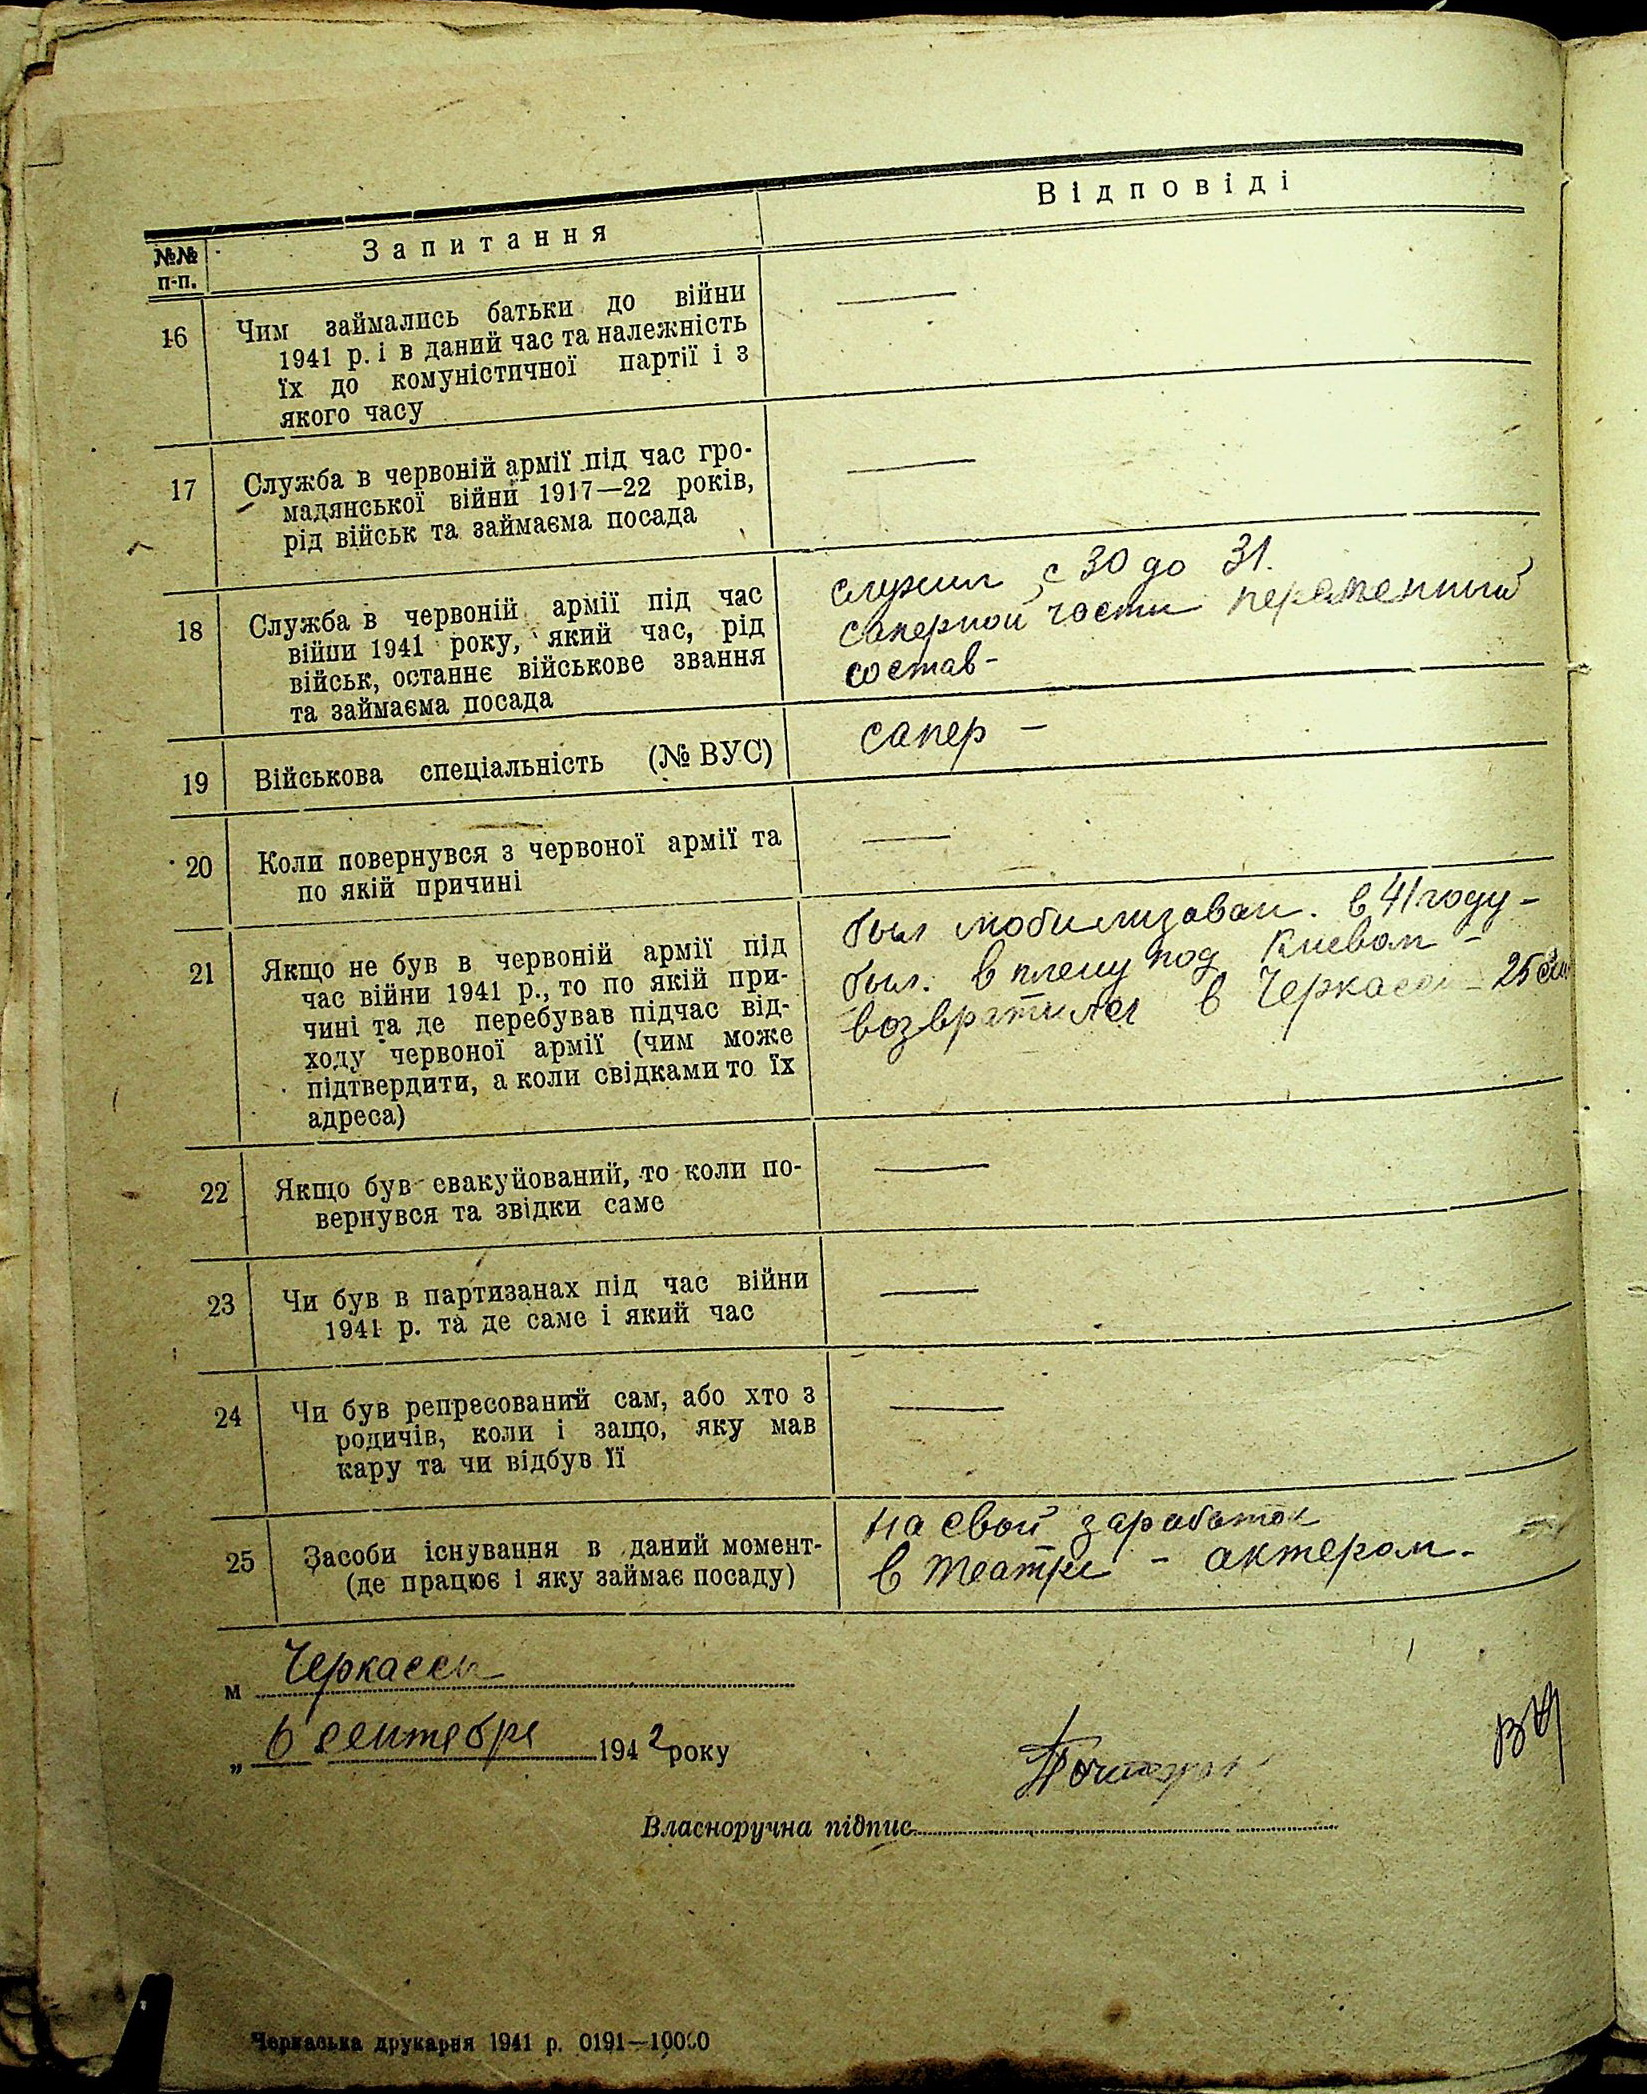 №№ п-п.
Запитання
Відповіді
16
Чим займались батьки до війни
1941 р. і в даний час та належність
їх до комуністичної партії і з
якого часу
17
Служба в червоній армії під час гро-
мадянської війни 1917—22 років,
рід військ та займаєма посада
18
Служба в червоній армії під час
війни 1941 року, який час, рід
військ, останнє військове звання
та займаєма посада
служил с 30 до 31.
саперной части переменный
состав-
19
Військова спеціальність (№ ВУС)
сапер —
20
Коли повернувся з червоної армії та
по якій причині
21
Якщо не був в червоній армії під
час війни 1941 р., то по якій при-
чині та де перебував підчас від-
ходу червоної армії (чим може
підтвердити, а коли свідками то їх
адреса)
был мобилизован. в 41 году -
был. в плену под Киевом -
возвратился в Черкассы - 25
22
Якщо був евакуйований, то коли по-
вернувся та звідки саме
23
Чи був в партизанах під час війни
1941 р. та де саме і який час
24
Чи був репресований сам, або хто з
родичів, коли і защо, яку мав
кару та чи відбув її
25
Засоби існування в даний момент-
(де працює і яку займає посаду)
на свой заработок
в театре - актером.
м Черкассы
„ 6 сентября 1942 року
Власноручна підпис
Черкаська друкарня 1941 р. 0191—10000